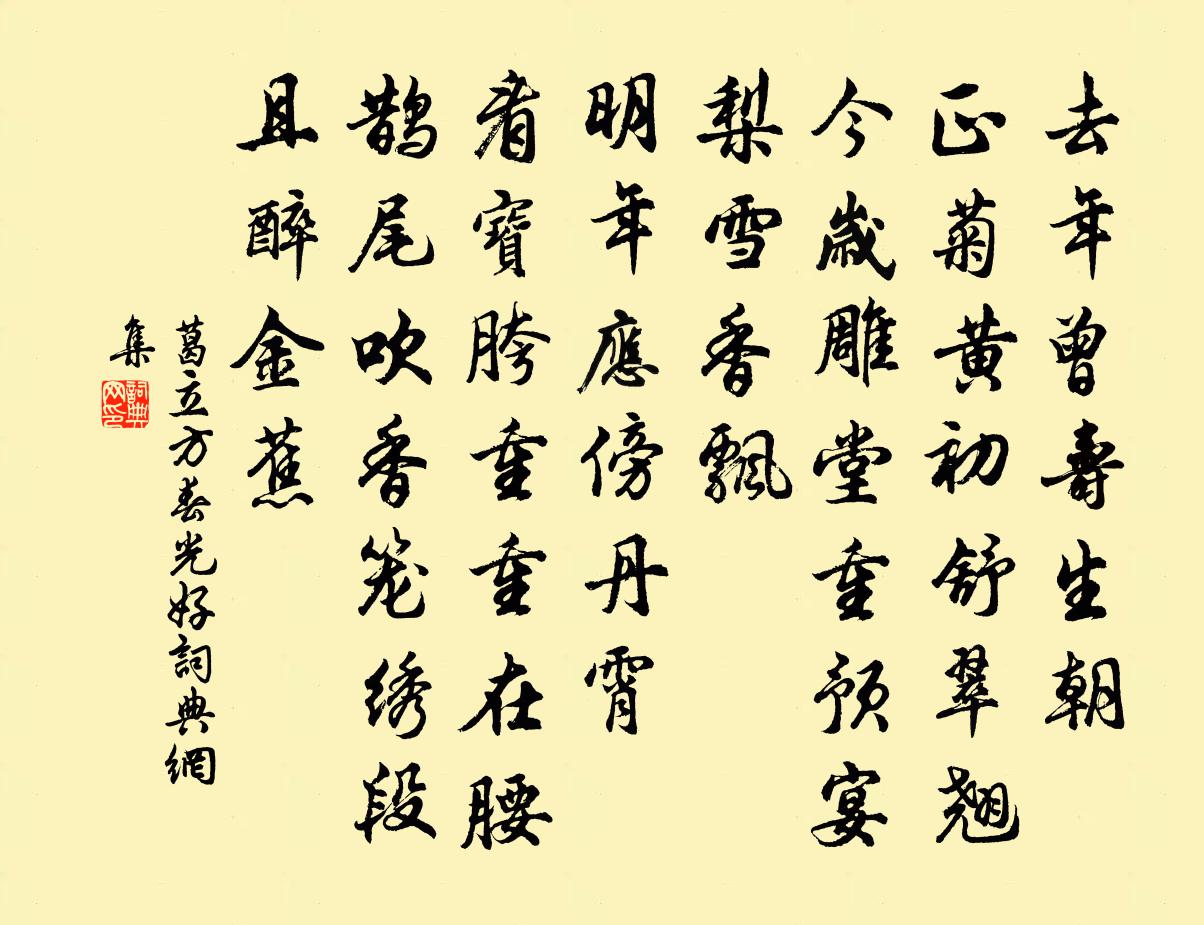 去年曾壽生朝
正菊黃初舒翠翹
今歲雕堂重預宴
梨雪香飄
明年應傍丹霄
看寶胯重重在腰
鵲尾吹香笼绣段
且醉金蕉
葛立方春光好詞典網
集
詞典
网印